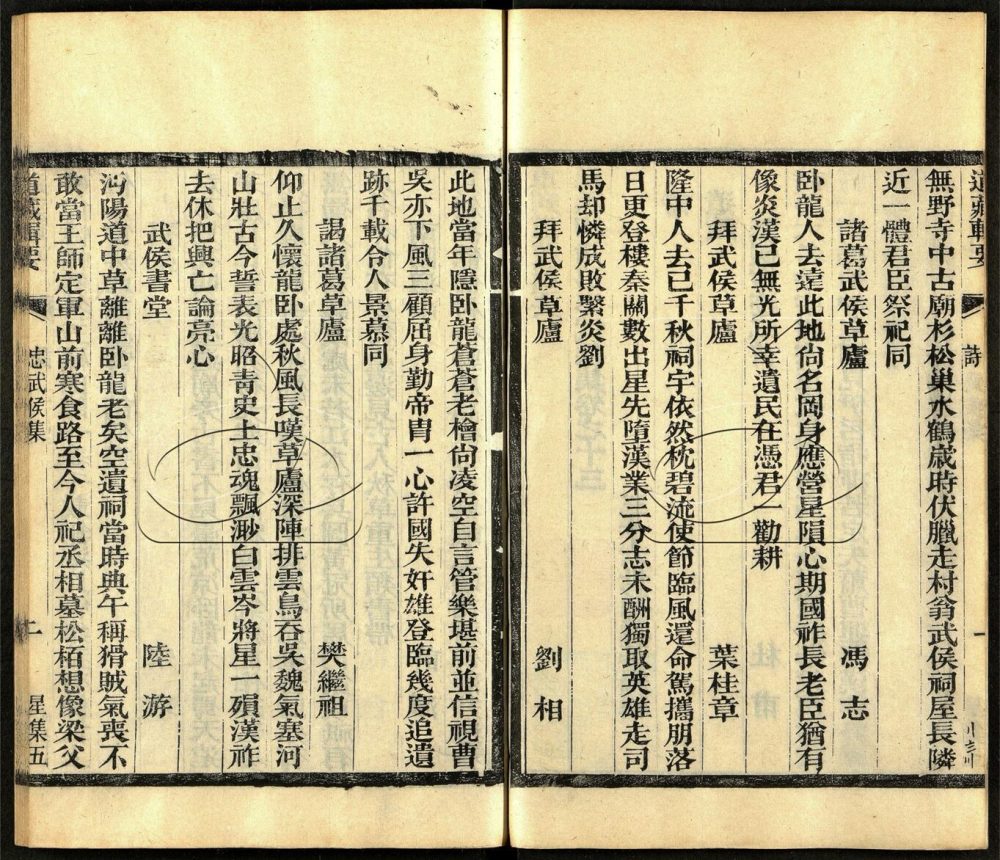 道藏輯要
詩
一
無野寺中古廟杉松巢水鶴歲時伏臘走村翁武侯祠屋長隣
近一體君臣祭祀同
諸葛武侯草廬 馮志
臥龍人去遠此地尙名岡身應營星隕心期國祚長老臣猶有
像炎漢已無光所幸遺民在憑君一勸耕
拜武侯草廬 葉桂章
隆中人去已千秋祠宇依然枕碧流使節臨風還命駕攜朋落
日更登樓秦關數出星先墮漢業三分志未酬獨取英雄走司
馬却憐成敗繫炎劉
拜武侯草廬 劉相
此地當年隱臥龍蒼蒼老檜尙凌空自言管樂堪前並信視曹
吳亦下風三顧屈身勤帝冑一心許國失奸雄登臨幾度追遺
跡千載令人景慕同
謁諸葛草廬 樊繼祖
仰止久懷龍臥處秋風長嘆草廬深陣排雲鳥吞吳魏氣塞河
山壯古今誓表光昭靑史上忠魂飄渺白雲岑將星一殞漢祚
去休把興亡論亮心
武侯書堂 陸游
沔陽道中草離離臥龍老矣空遺祠當時典午稱猾賊氣喪不
敢當王師定軍山前寒食路至今人祀丞相墓松栢想像梁父
道藏輯要
忠武侯集
二
星集五